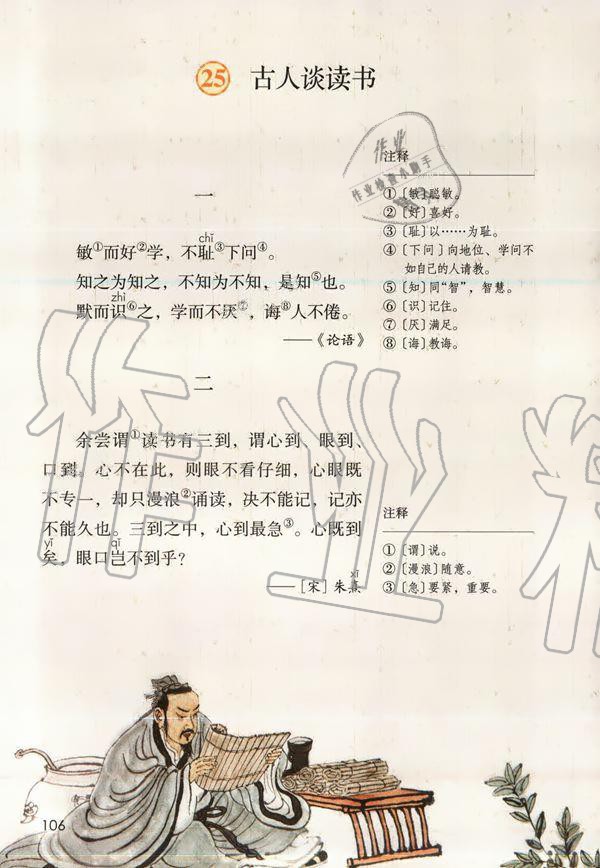 25 古人谈读书
一
chǐ
敏①而好②学，不耻③下问④。
知之为知之，不知为不知，是知⑤也。
zhì
默而识⑥之，学而不厌⑦，诲⑧人不倦。
——《论语》
注释
①〔敏〕聪敏。
②〔好〕喜好。
③〔耻〕以……为耻。
④〔下问〕向地位、学问不
如自己的人请教。
⑤〔知〕同“智”，智慧。
⑥〔识〕记住。
⑦〔厌〕满足。
⑧〔诲〕教诲。
二
余尝谓①读书有三到，谓心到、眼到、
口到。心不在此，则眼不看仔细，心眼既
不专一，却只漫浪②诵读，决不能记，记亦
不能久也。三到之中，心到最急③。心既到
yǐ qǐ
矣，眼口岂不到乎？
xī
——［宋］朱熹
注释
①〔谓〕说。
②〔漫浪〕随意。
③〔急〕要紧，重要。
106
作业
作业检查小助手
作业精